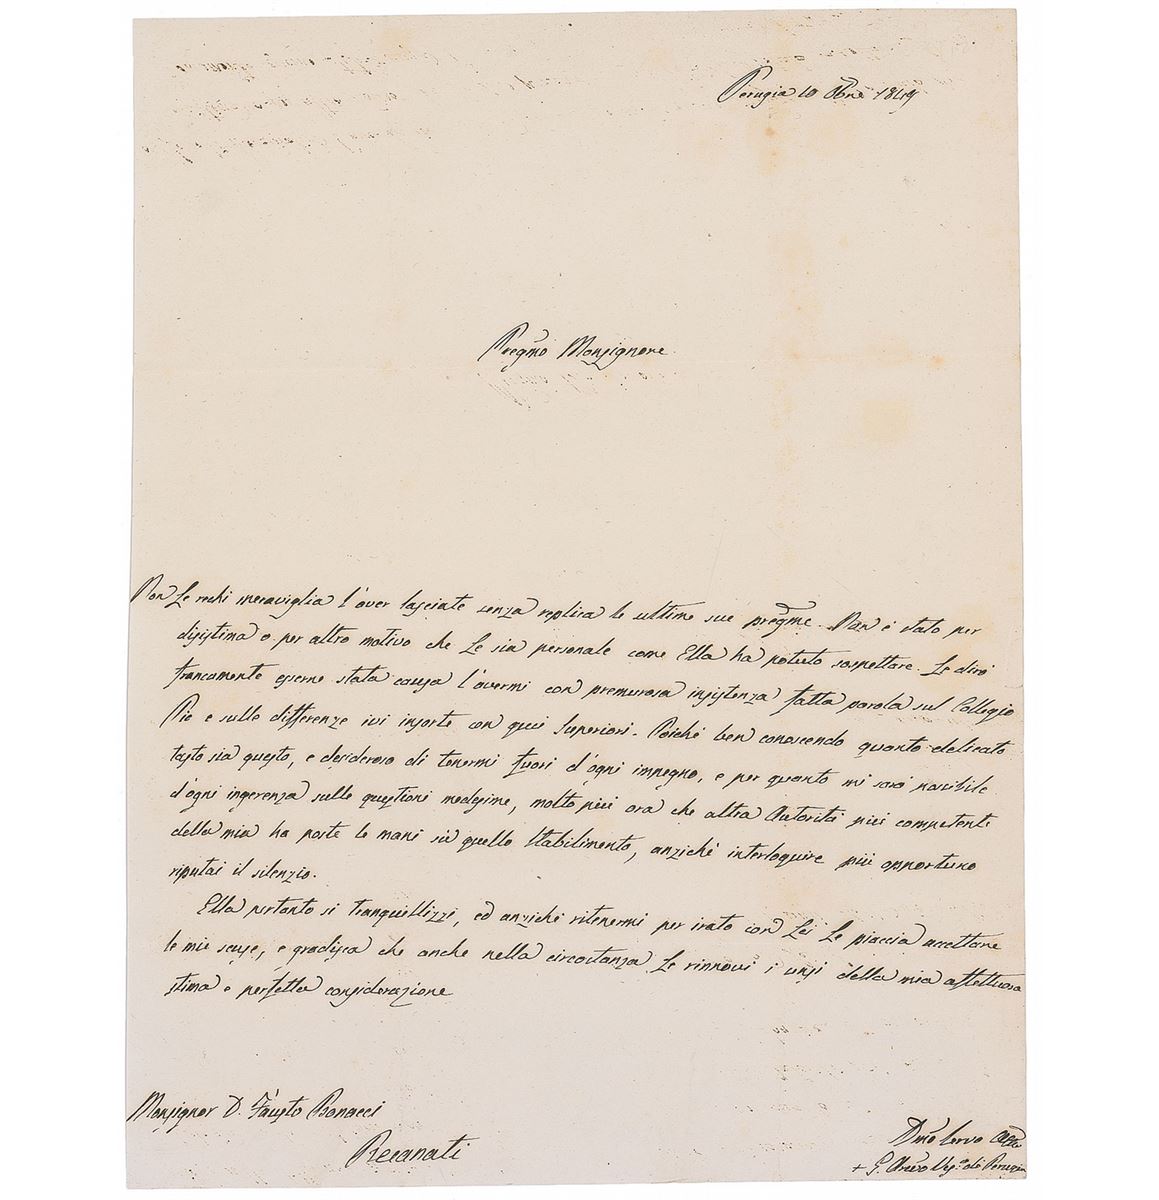 Perugia 10 Obre 1849
Pregmo Monsignore
Non Le rechi meraviglia l'aver lasciate senza replica le ultime sue pregme. Non è stato per
disistima o per altro motivo che Le sia personale come Ella ha potuto sospettare. Le dirò
francamente esserne stata causa l'avermi con premurosa insistenza fatta parola sul Collegio
Pio e sulle differenze ivi insorte con quei Superiori. Poiché ben conoscendo quanto delicato
tasto sia questo, e desideroso di tenermi fuori d'ogni impegno, e per quanto mi sarà possibile
d'ogni ingerenza sulle questioni medesime, molto più ora che altra Autorità più competente
della mia ha poste le mani sù quello Stabilimento, anziché interloquire più opportuno
riputai il silenzio.
Ella pertanto si tranquillizzi, ed anziché ritenermi per irato con Lei Le piaccia accettare
le mie scuse, e gradisca che anche nella circostanza Le rinnovi i sensi della mia affettuosa
stima e perfetta considerazione
Monsignor D. Fausto Bonacci
Recanati
Dmo Servo
+ G. Arciv. Vesc. di Perugia